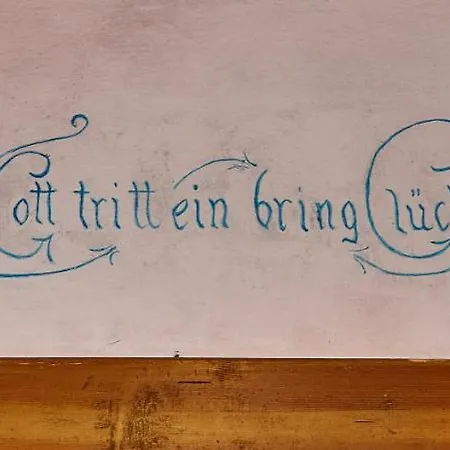 Gott tritt ein bring Glück